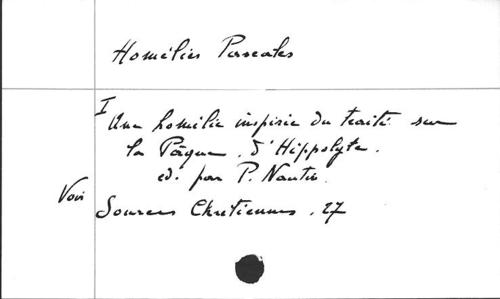 Homélies Pascales
I
Une homélie inspirée du traité sur
la Pâque d'Hippolyte.
ed. par P. Nautin.
Voir
Sources Chretiennes. 27